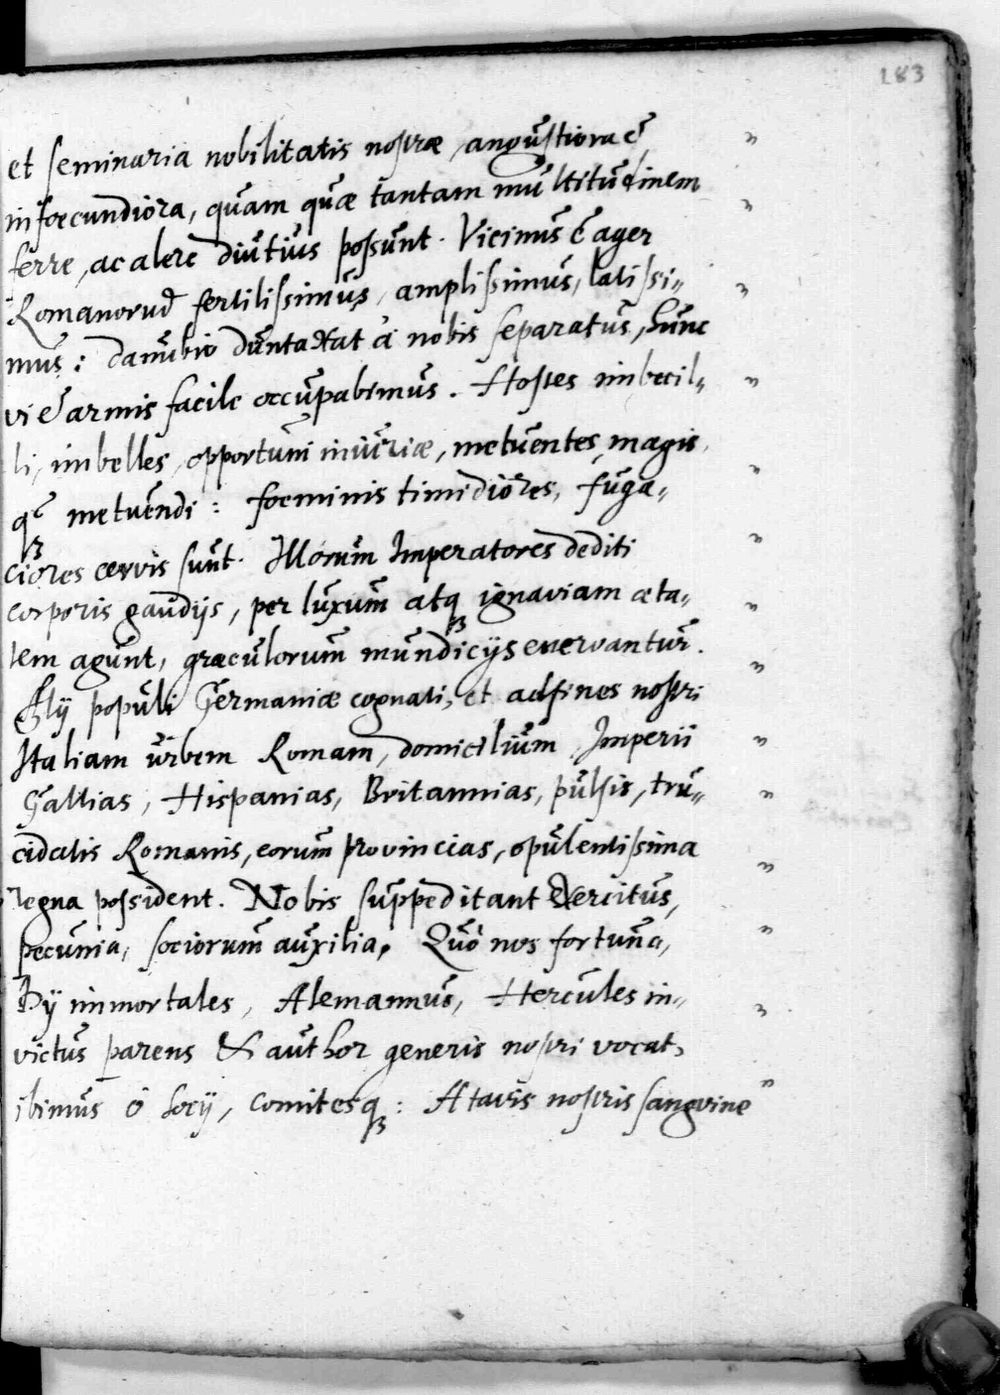 183
et seminaria nobilitatis nostræ, angustiora &
infoecundiora, quam quæ tantam multitudinem
ferre, ac alere diutius possunt. Vicinus é ager
Romanorum fertilissimus, amplissimus, latissi„
mus: danubio duntaxat à nobis separatus, hunc
vi & armis facile occupabimus. Hostes imbecil„
li, imbelles, opportuni iniuriæ, metuentes, magis
qȝ metuendi: foeminis timidiores, fuga„
ciores cervis sunt. Illorum Imperatores dediti
corporis gaudijs, per luxum atqȝ ignaviam æta„
tem agunt, græculorum mundicijs enervantur.
Hij populi Germaniæ cognati, et adfines nostri
Italiam urbem Romam, domicilium Imperii
Gallias, Hispanias, Britannias, pulsis, tru„
cidatis Romanis, eorum provincias, opulentissima
regna possident. Nobis suppeditant Exercitus,
pecunia, sociorum auxilia, Quò nos fortuna,
Dij immortales, Alemannus, Hercules in„
victus parens & author generis nostri vocat,
ibimus ô socij, comitesqȝ: Atavis nostris sangvine